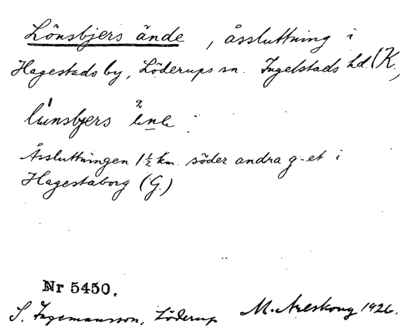 Lönsbjers ände, åssluttning i
Hagestads by, Löderups sn. Ingelstads hd. (K,
lúnsbjers ä̊nɐ.
Åssluttningen 1½ km. söder andra g-et i
Hagestaborg (G.)
Nr 5450.
S. Ingemansson, Löderup M. Areskoug 1926.